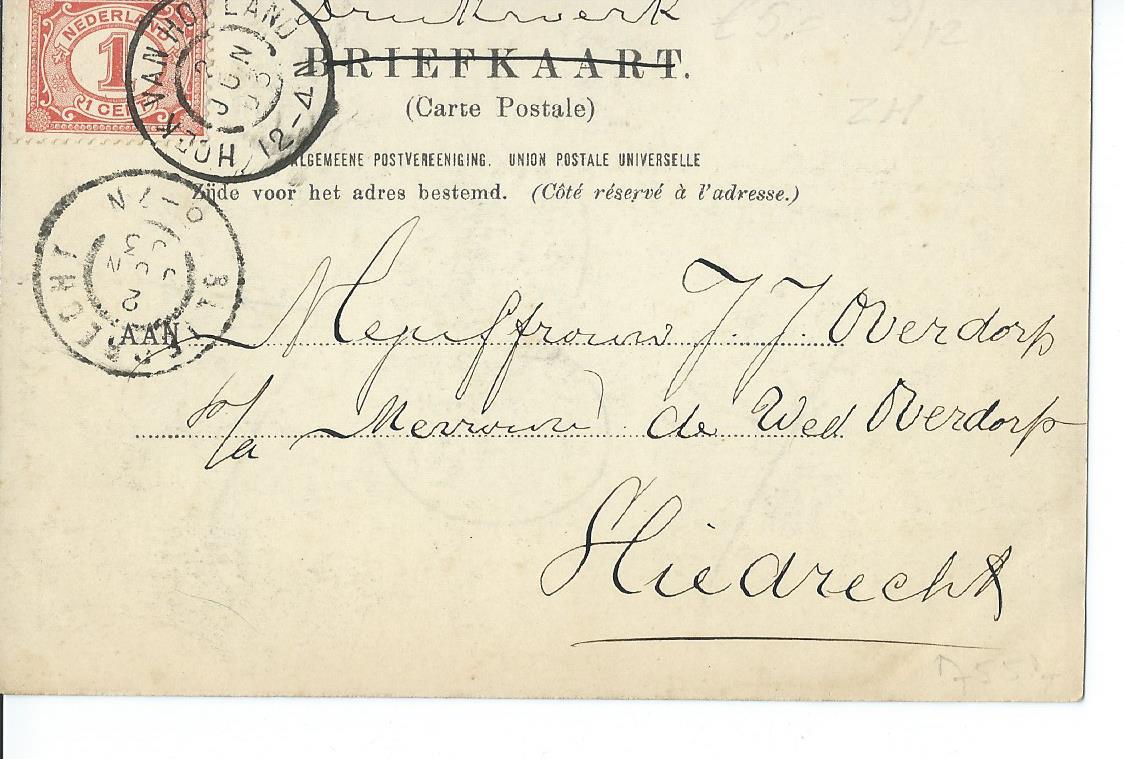 Drukwerk
BRIEFKAART.
(Carte Postale)
ALGEMEENE POSTVEREENIGING. UNION POSTALE UNIVERSELLE
Zijde voor het adres bestemd. (Côté réservé à l'adresse.)
NEDERLAND
1
1 CENT
HOEK VAN HOLLAND
2 JUN 03
12-4N
SLIEDRECHT
2 JUN 03
AAN
Mejuffrouw J. J. Overdorp
p/a Mevrouw de Wed Overdorp
Sliedrecht
ZH